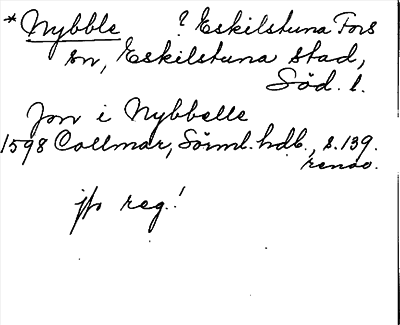 * Nybble ? Eskilstuna Fors
sn, Eskilstuna stad,
Söd. l.
Jon i Nybbelle
1598 Collmar, Sörml. hdb., s. 139.
renso.
jfr reg.!